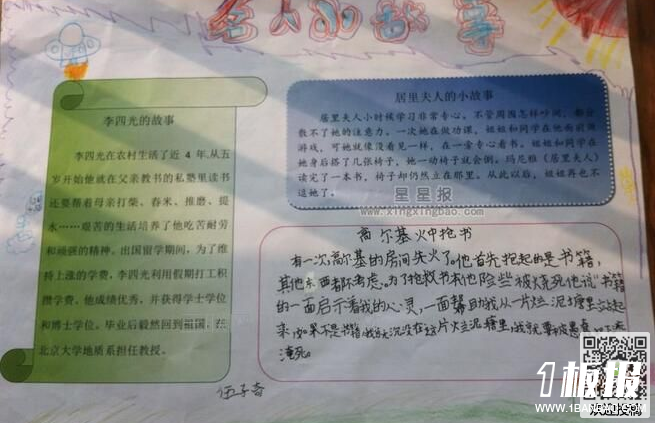 名人的故事
李四光的故事
李四光在农村生活了近 4 年,从五
岁开始他就在父亲教书的私塾里读书
还要帮着母亲打柴、舂米、推磨、提
水……艰苦的生活培养了他吃苦耐劳
和顽强的精神。出国留学期间，为了维
持上涨的学费，李四光利用假期打工积
攒学费。他成绩优秀，并获得学士学位
和博士学位。毕业后毅然回到祖国，在
北京大学地质系担任教授。
居里夫人的小故事
居里夫人小时候学习非常专心，不管周围怎样吵闹，都分
散不了她的注意力。一次她在做功课，姐姐和同学在他面前做
游戏，可她就像没看见一样，在一旁专心看书。姐姐和同学在
她身后搭了几张椅子，她一动椅子就会倒。玛尼雅《居里夫人》
读完了一本书，椅子却仍然立在那里。从此以后，姐姐再也不
逗她了。
星星报
www.xingxingbao.com
高尔基火中抢书
有一次,高尔基的房间失火了。他首先抱起的是书籍，
其他东西都不考虑。为了抢救书籍他险些被烧死他说"书籍
的一面启示着我的心灵，一面帮助我从一片烂泥塘里站起
来。如果不是书籍,我就沉没在这片烂泥塘里,我就要被愚蠢
淹死。
伍子奇
1板报
WWW.1BANBAO.COM
欢迎投稿